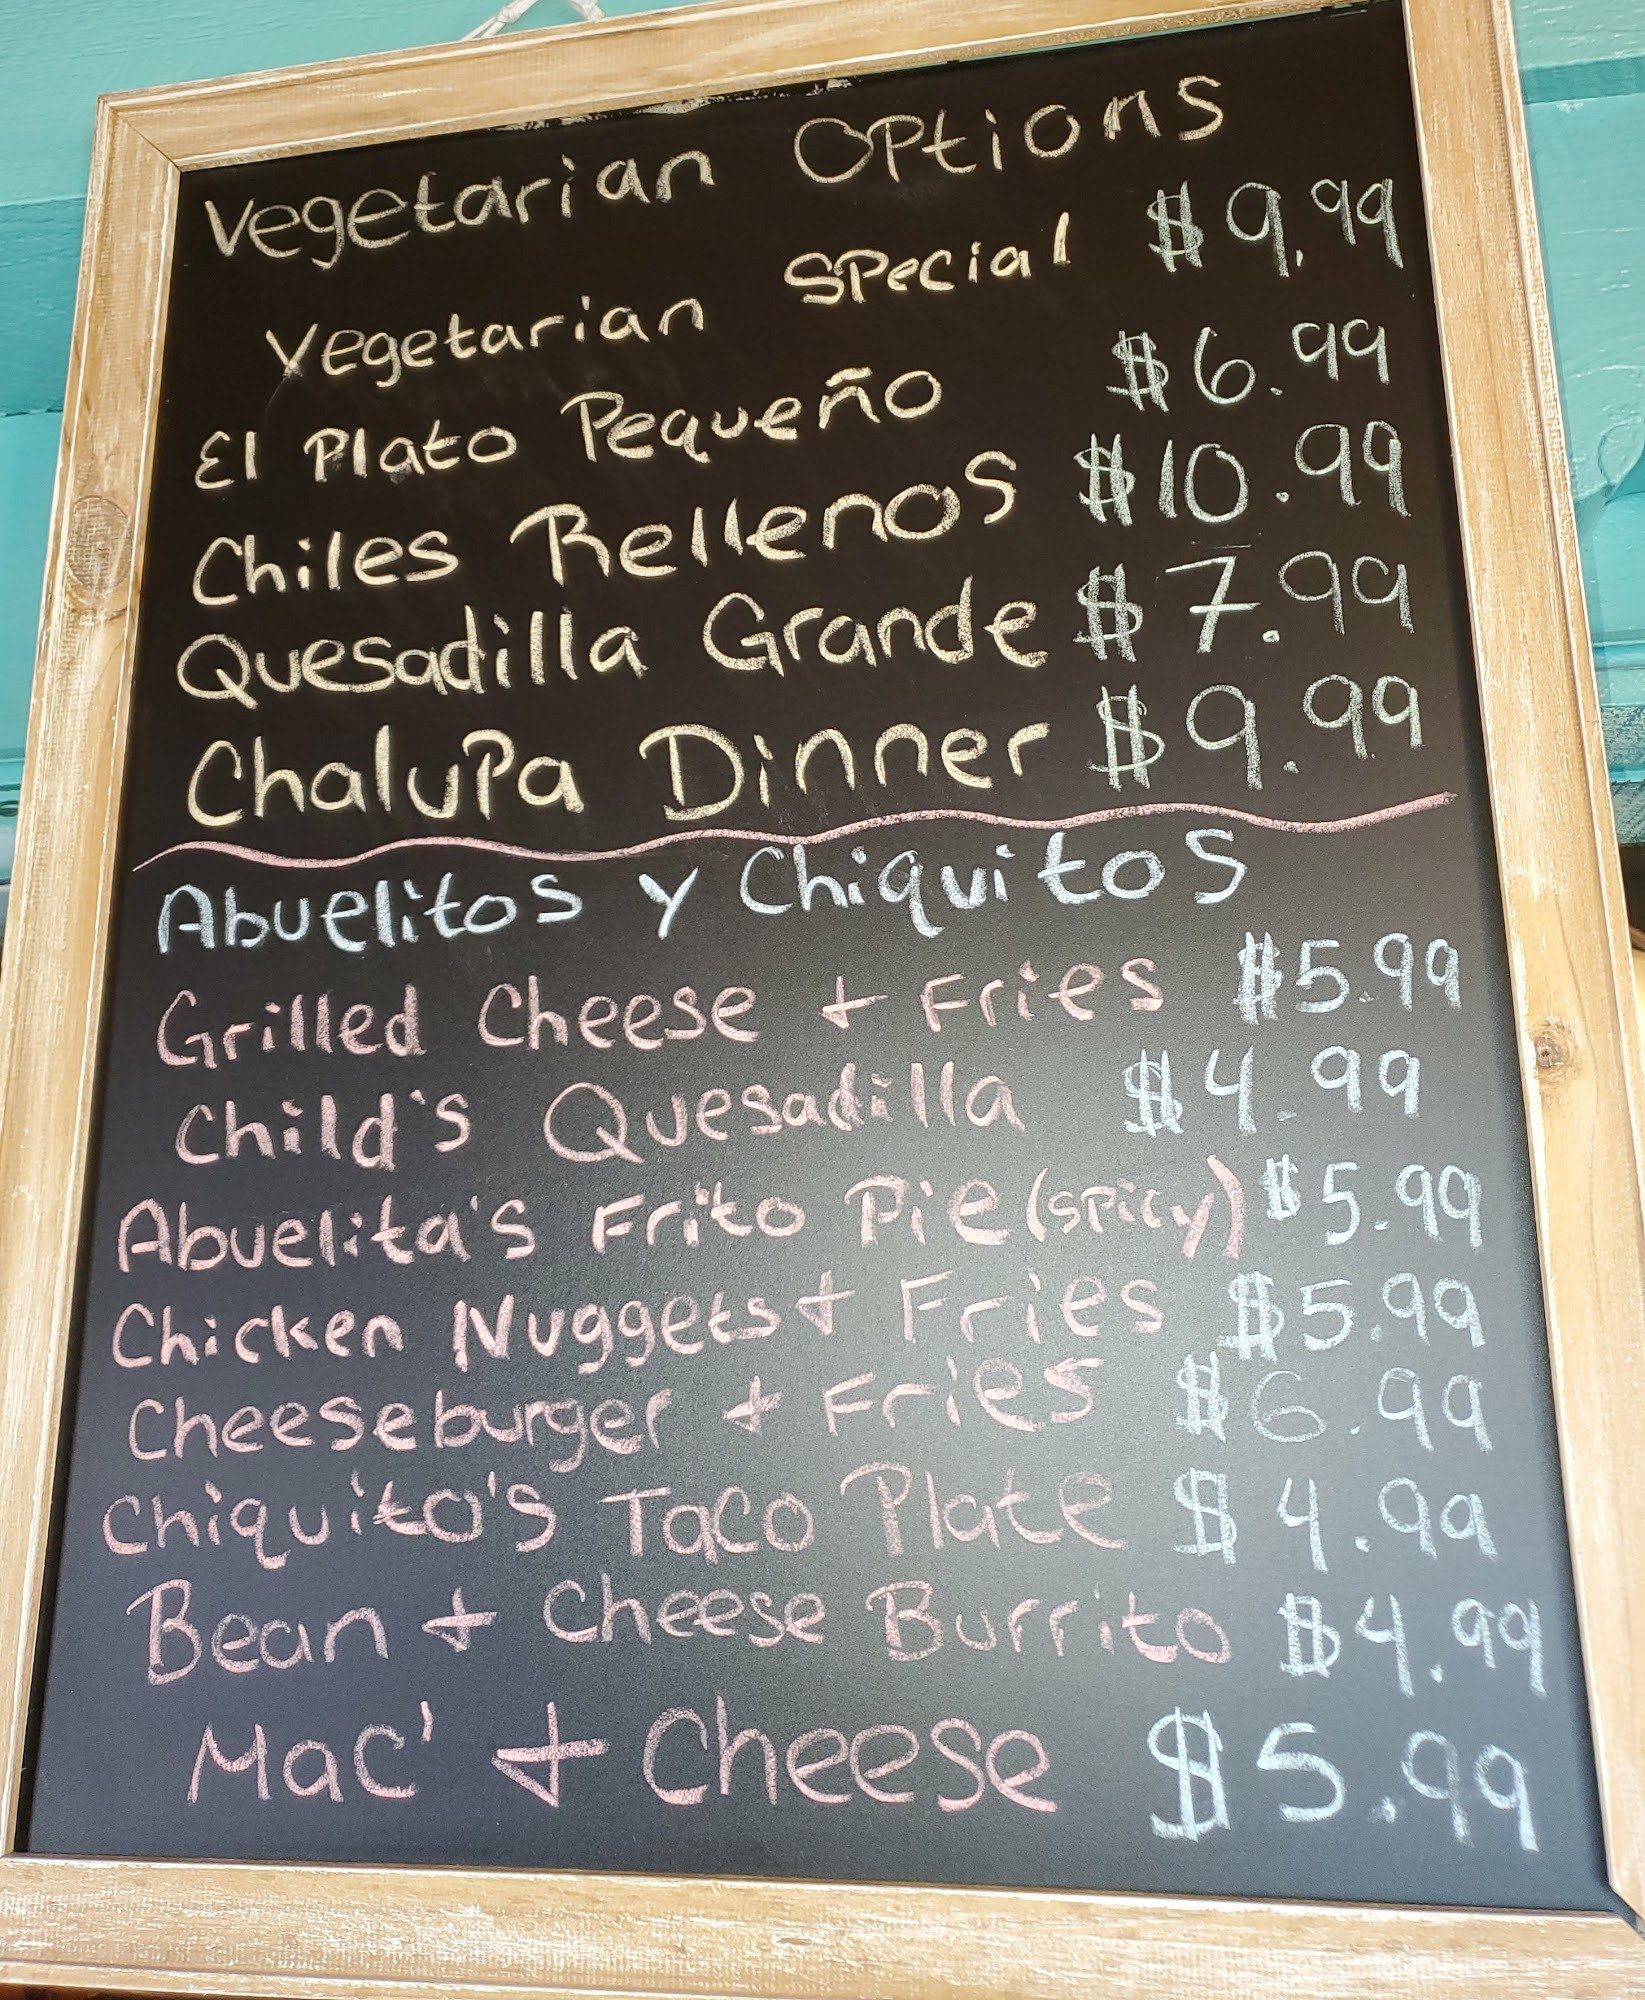 Vegetarian Options
Vegetarian Special $9.99
El Plato Pequeño $6.99
Chiles Rellenos $10.99
Quesadilla Grande $7.99
Chalupa Dinner $9.99
Abuelitos y Chiquitos
Grilled Cheese + Fries $5.99
Child's Quesadilla $4.99
Abuelita's Frito Pie (spicy) $5.99
Chicken Nuggets + Fries $5.99
Cheeseburger + Fries $6.99
Chiquito's Taco Plate $4.99
Bean + Cheese Burrito $4.99
Mac' + Cheese $5.99